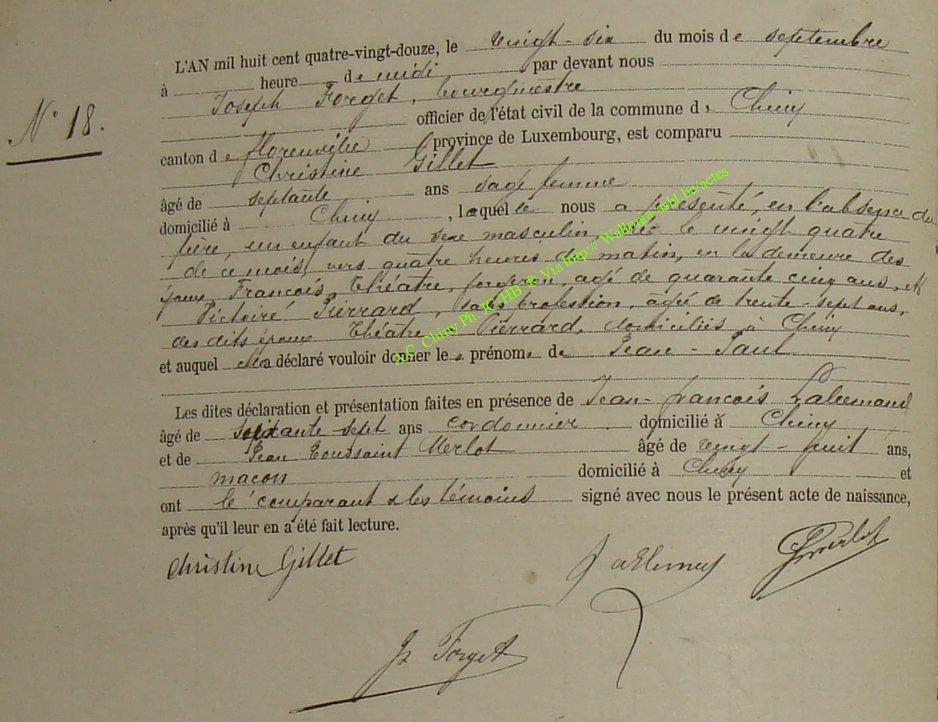 L'AN mil huit cent quatre-vingt-douze, le vingt-six du mois de septembre
à heure de midi par devant nous
Joseph Forget, bourgmestre
officier de l'état civil de la commune d, Chiny
N° 18.
canton de florenville province de Luxembourg, est comparu
Christine Gillet
âgé de septante ans sage femme
domicilié à Chiny, laquelle nous a présenté, en l'absence du
père, un enfant du sexe masculin, né le vingt quatre
de ce mois, vers quatre heures du matin, en la demeure des
époux François Théatre, forgeron, agé de quarante cinq ans, et
Victoire Pierrard, sans profession, agée de trente-sept ans,
des dits époux Théatre-Pierrard, domiciliés à Chiny
et auquel elle a déclaré vouloir donner les prénoms de Jean-Paul
A.C. Chiny Ph. JG HB © Via http:// Wallonia.asbl.be/actes
Les dites déclaration et présentation faites en présence de Jean-francois Lallemand
âgé de soixante sept ans cordonnier domicilié à Chiny
et de Jean Toussaint Merlot âgé de vingt-huit ans,
macon domicilié à Chiny et
ont le comparant & les témoins signé avec nous le présent acte de naissance,
après qu'il leur en a été fait lecture.
Christine Gillet
Js Forget